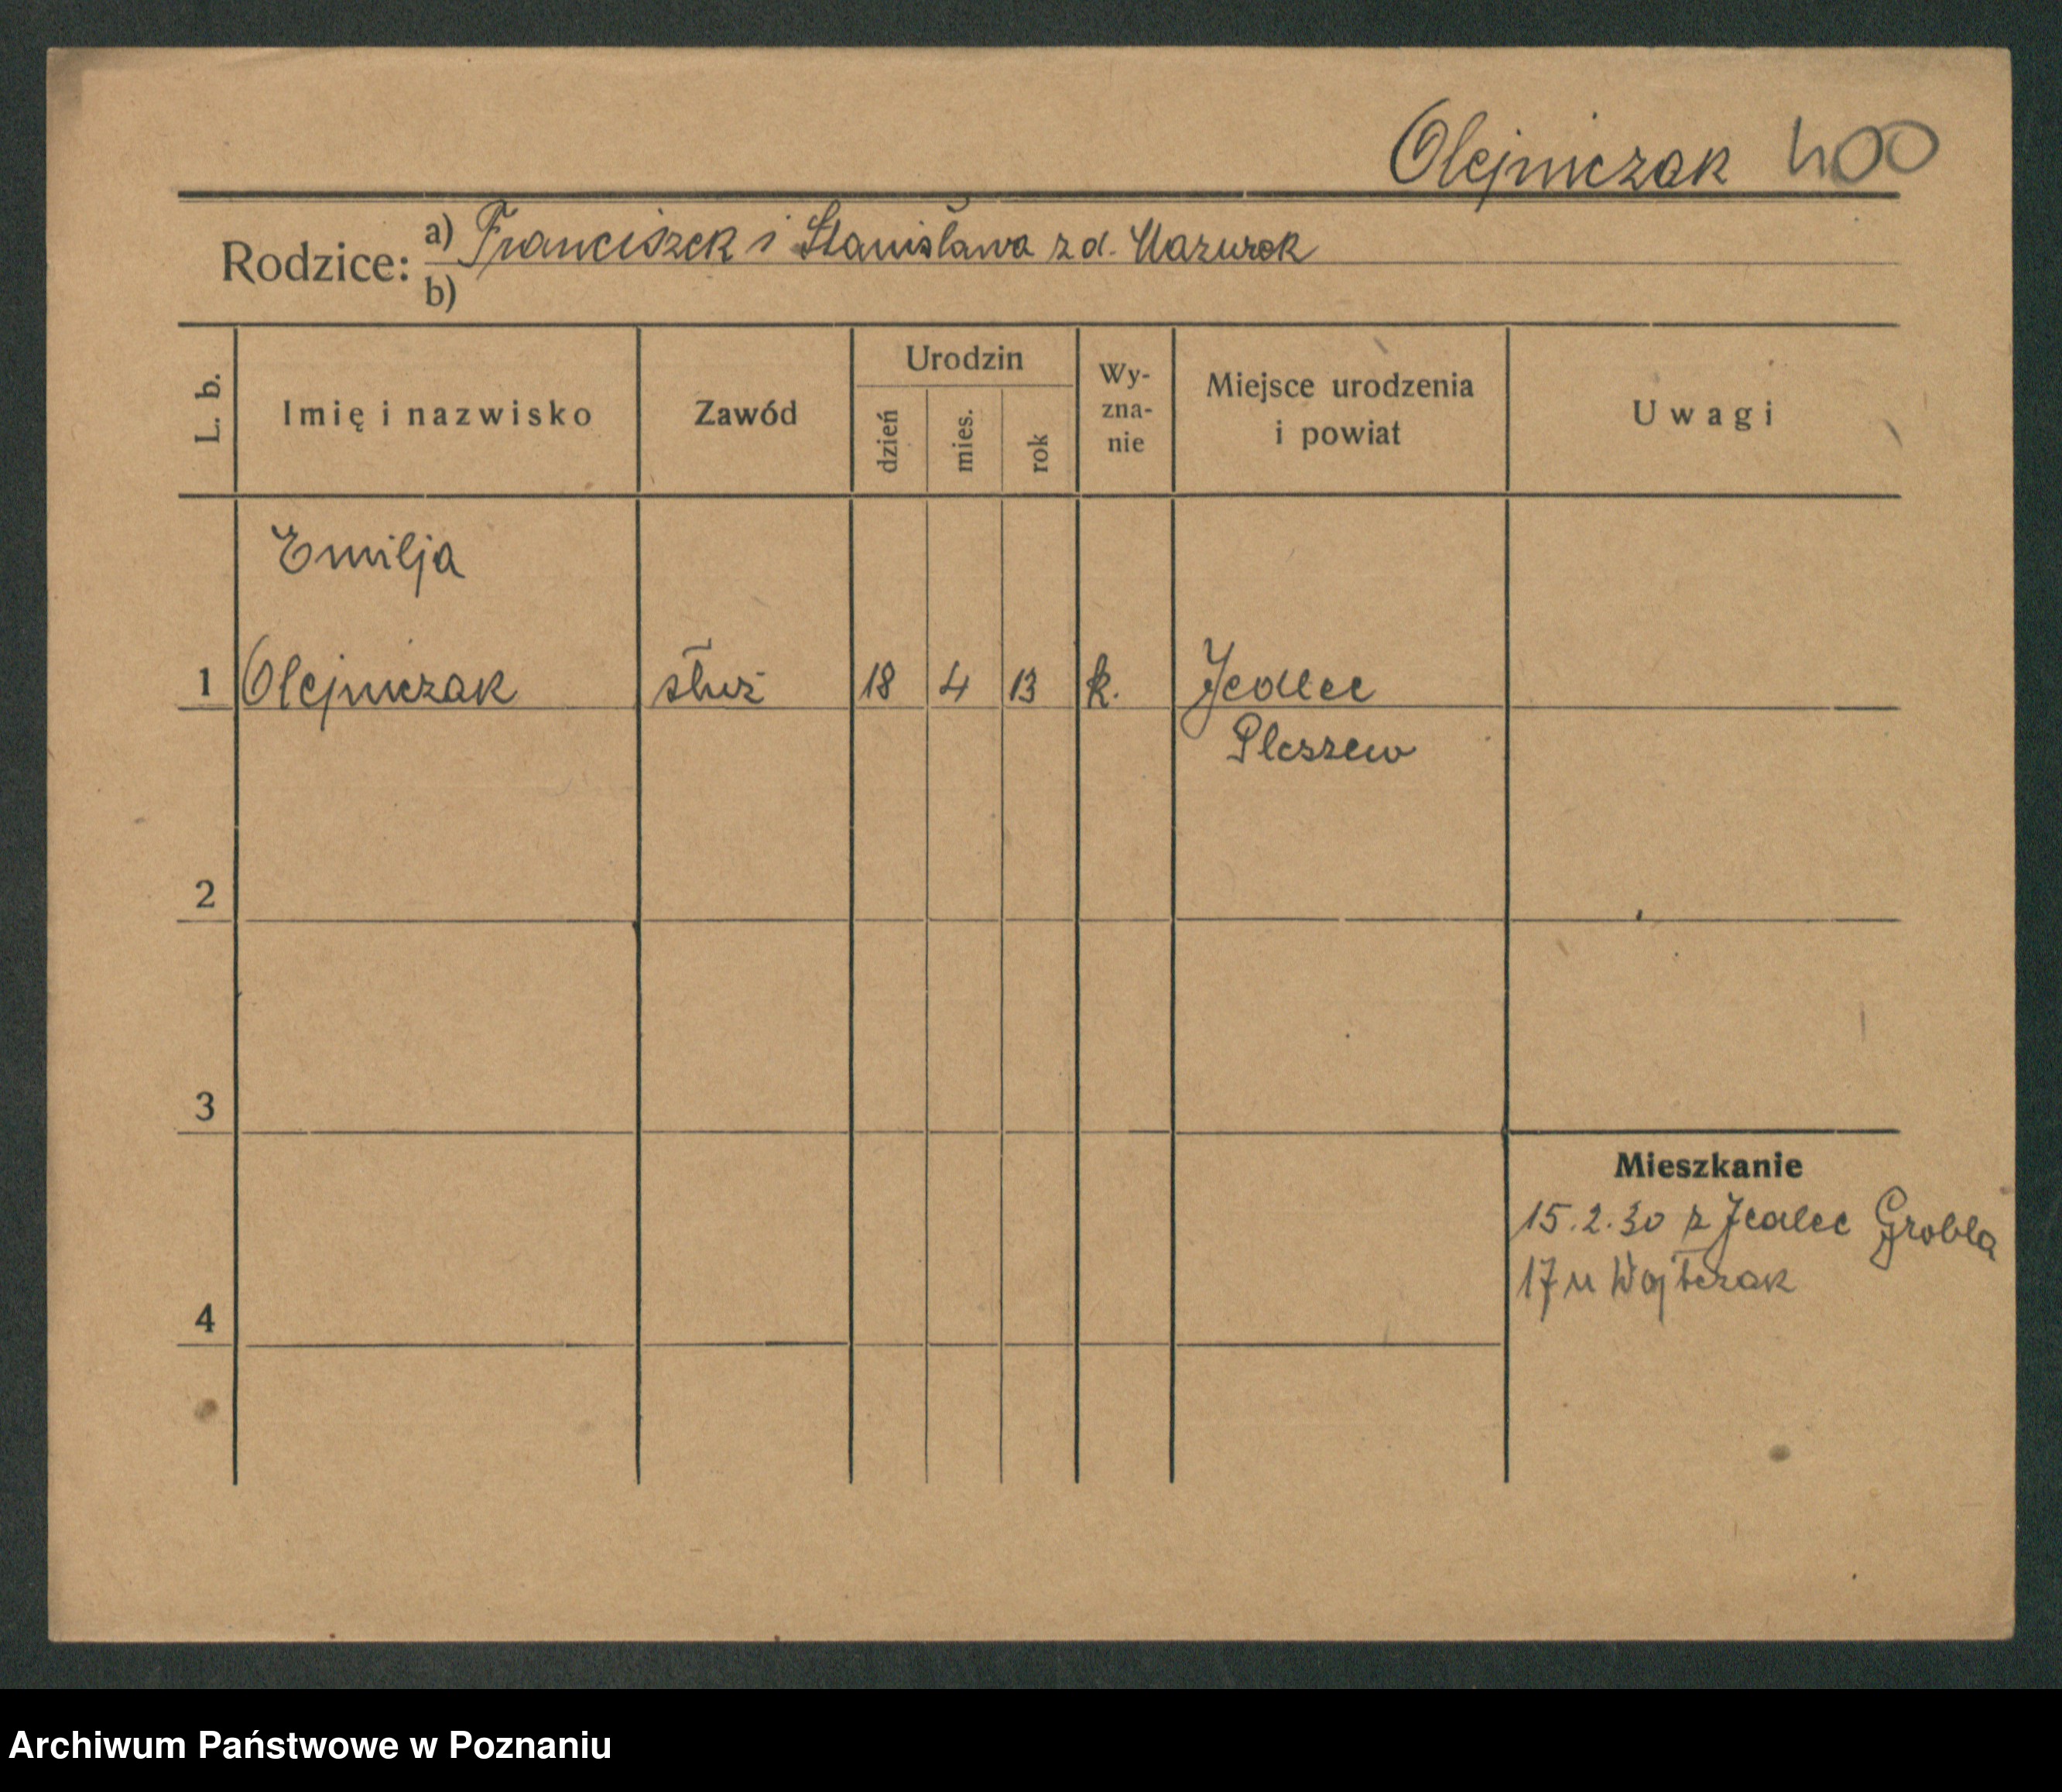 Olejniczak 400
Rodzice: a) Franciszek i Stanisława z d. Mazurek
b)
L. b. Imię i nazwisko Zawód Urodzin dzień mies. rok Wy-zna-nie Miejsce urodzenia i powiat Uwagi
Emilja
1 Olejniczak służ 18 4 13 k. Jedlec
Pleszew
2
3
Mieszkanie
15.2.30 z Jedlec Grobla
17 u Wojtczak
4
Archiwum Państwowe w Poznaniu